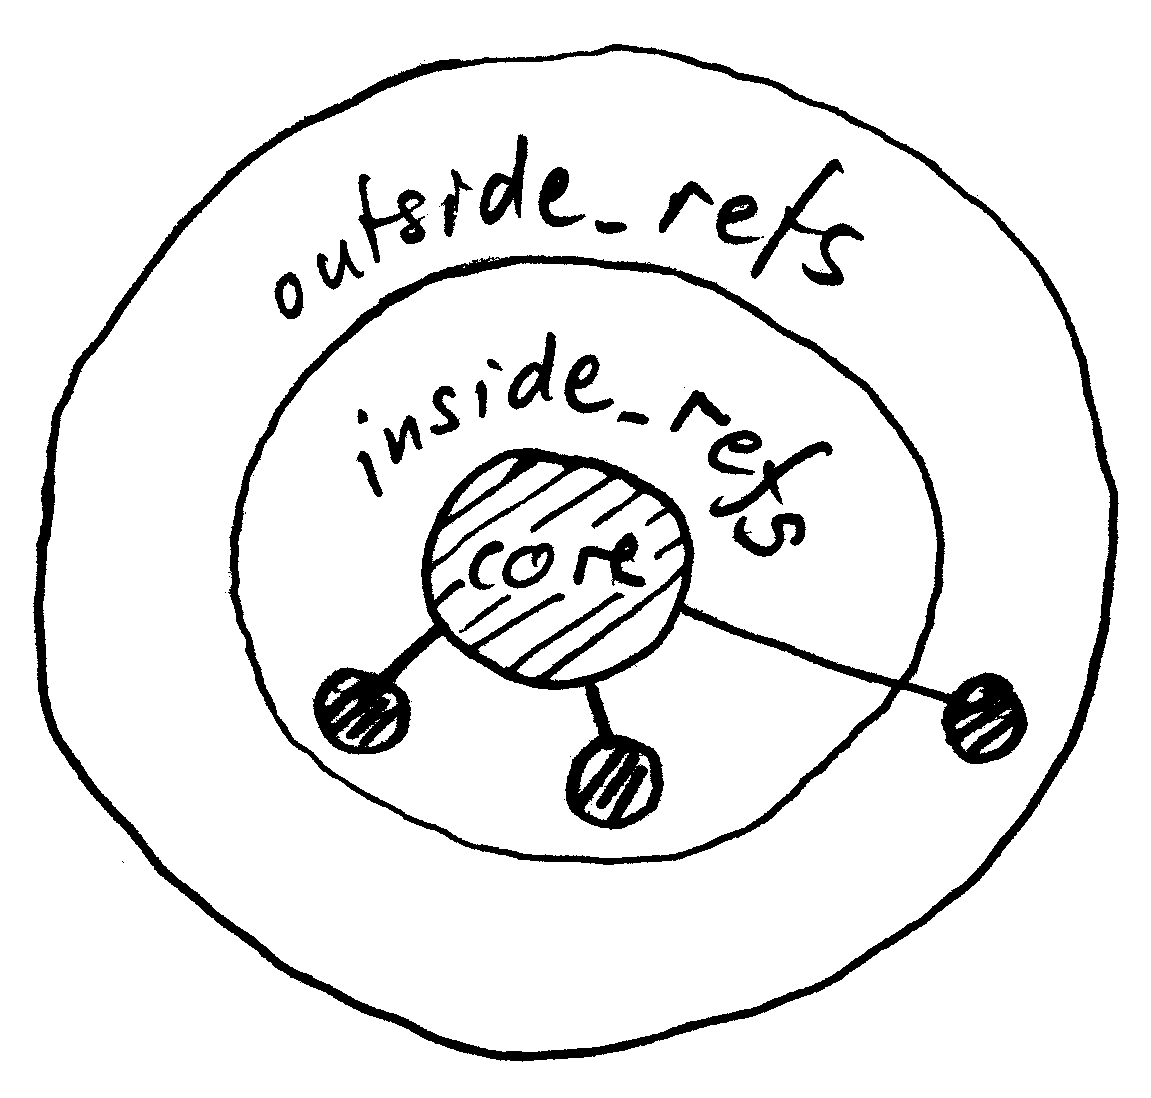 outside_refs
inside_refs
core